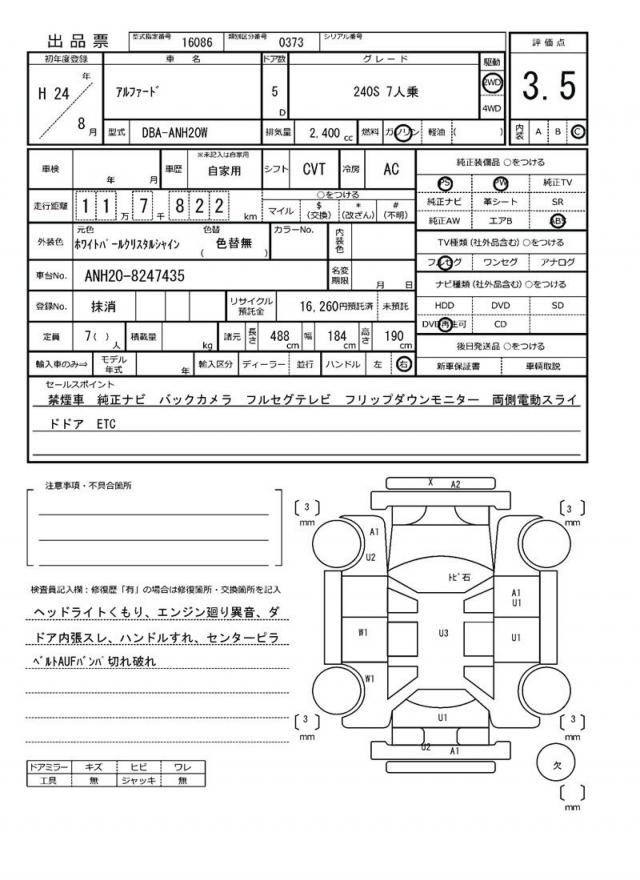 出品票 型式指定番号 16086 類別区分番号 0373 シリアル番号
初年度登録 車名 ドア数 グレード 駆動 評価点
H 24 年 8 月 アルファード 5 D 240S 7人乗 2WD 4WD 3.5
型式 DBA-ANH20W 排気量 2,400 cc 燃料 ガソリン 軽油 ( ) 内装 A B C
車検 年 月 車歴 ※未記入は自家用 自家用 シフト CVT 冷房 AC 純正装備品 ○をつける
PS PW 純正TV
走行距離 1 1 万 7 千 8 2 2 km ○をつける
マイル $ (交換) * (改ざん) # (不明)
純正ナビ 革シート SR
純正AW エアB ABS
外装色 元色 ホワイトパールクリスタルシャイン 色替 ( 色替無 ) カラーNo. 内装色
TV種類 (社外品含む) ○をつける
フルセグ ワンセグ アナログ
車台No. ANH20-8247435 名変期限 月 日
ナビ種類 (社外品含む) ○をつける
登録No. 抹消 リサイクル預託金 16,260円預託済 未預託
HDD DVD SD
DVD再生可 CD
定員 7( ) 人 積載量 kg 諸元 長さ 488 cm 幅 184 cm 高さ 190 cm
後日発送品 ○をつける
輸入車のみ⇒ モデル年式 年 輸入区分 ディーラー 並行 ハンドル 左 右
新車保証書 車輌取説
セールスポイント
禁煙車 純正ナビ バックカメラ フルセグテレビ フリップダウンモニター 両側電動スライ
ドドア ETC
注意事項・不具合箇所
検査員記入欄:修復歴「有」の場合は修復箇所・交換箇所を記入
ヘッドライトくもり、エンジン廻り異音、ダ
ドア内張スレ、ハンドルすれ、センターピラ
ベルトAUFバンパ切れ破れ
ドアミラー キズ ヒビ ワレ
工具 無 ジャッキ 無
X A2
[ 3 ] mm
[ 3 ] mm
A1
U2
トビ石
A1
U1
W1
U3
U1
W1
U1
[ 3 ] mm
[ 3 ] mm
U2 A1
欠
[ ] mm